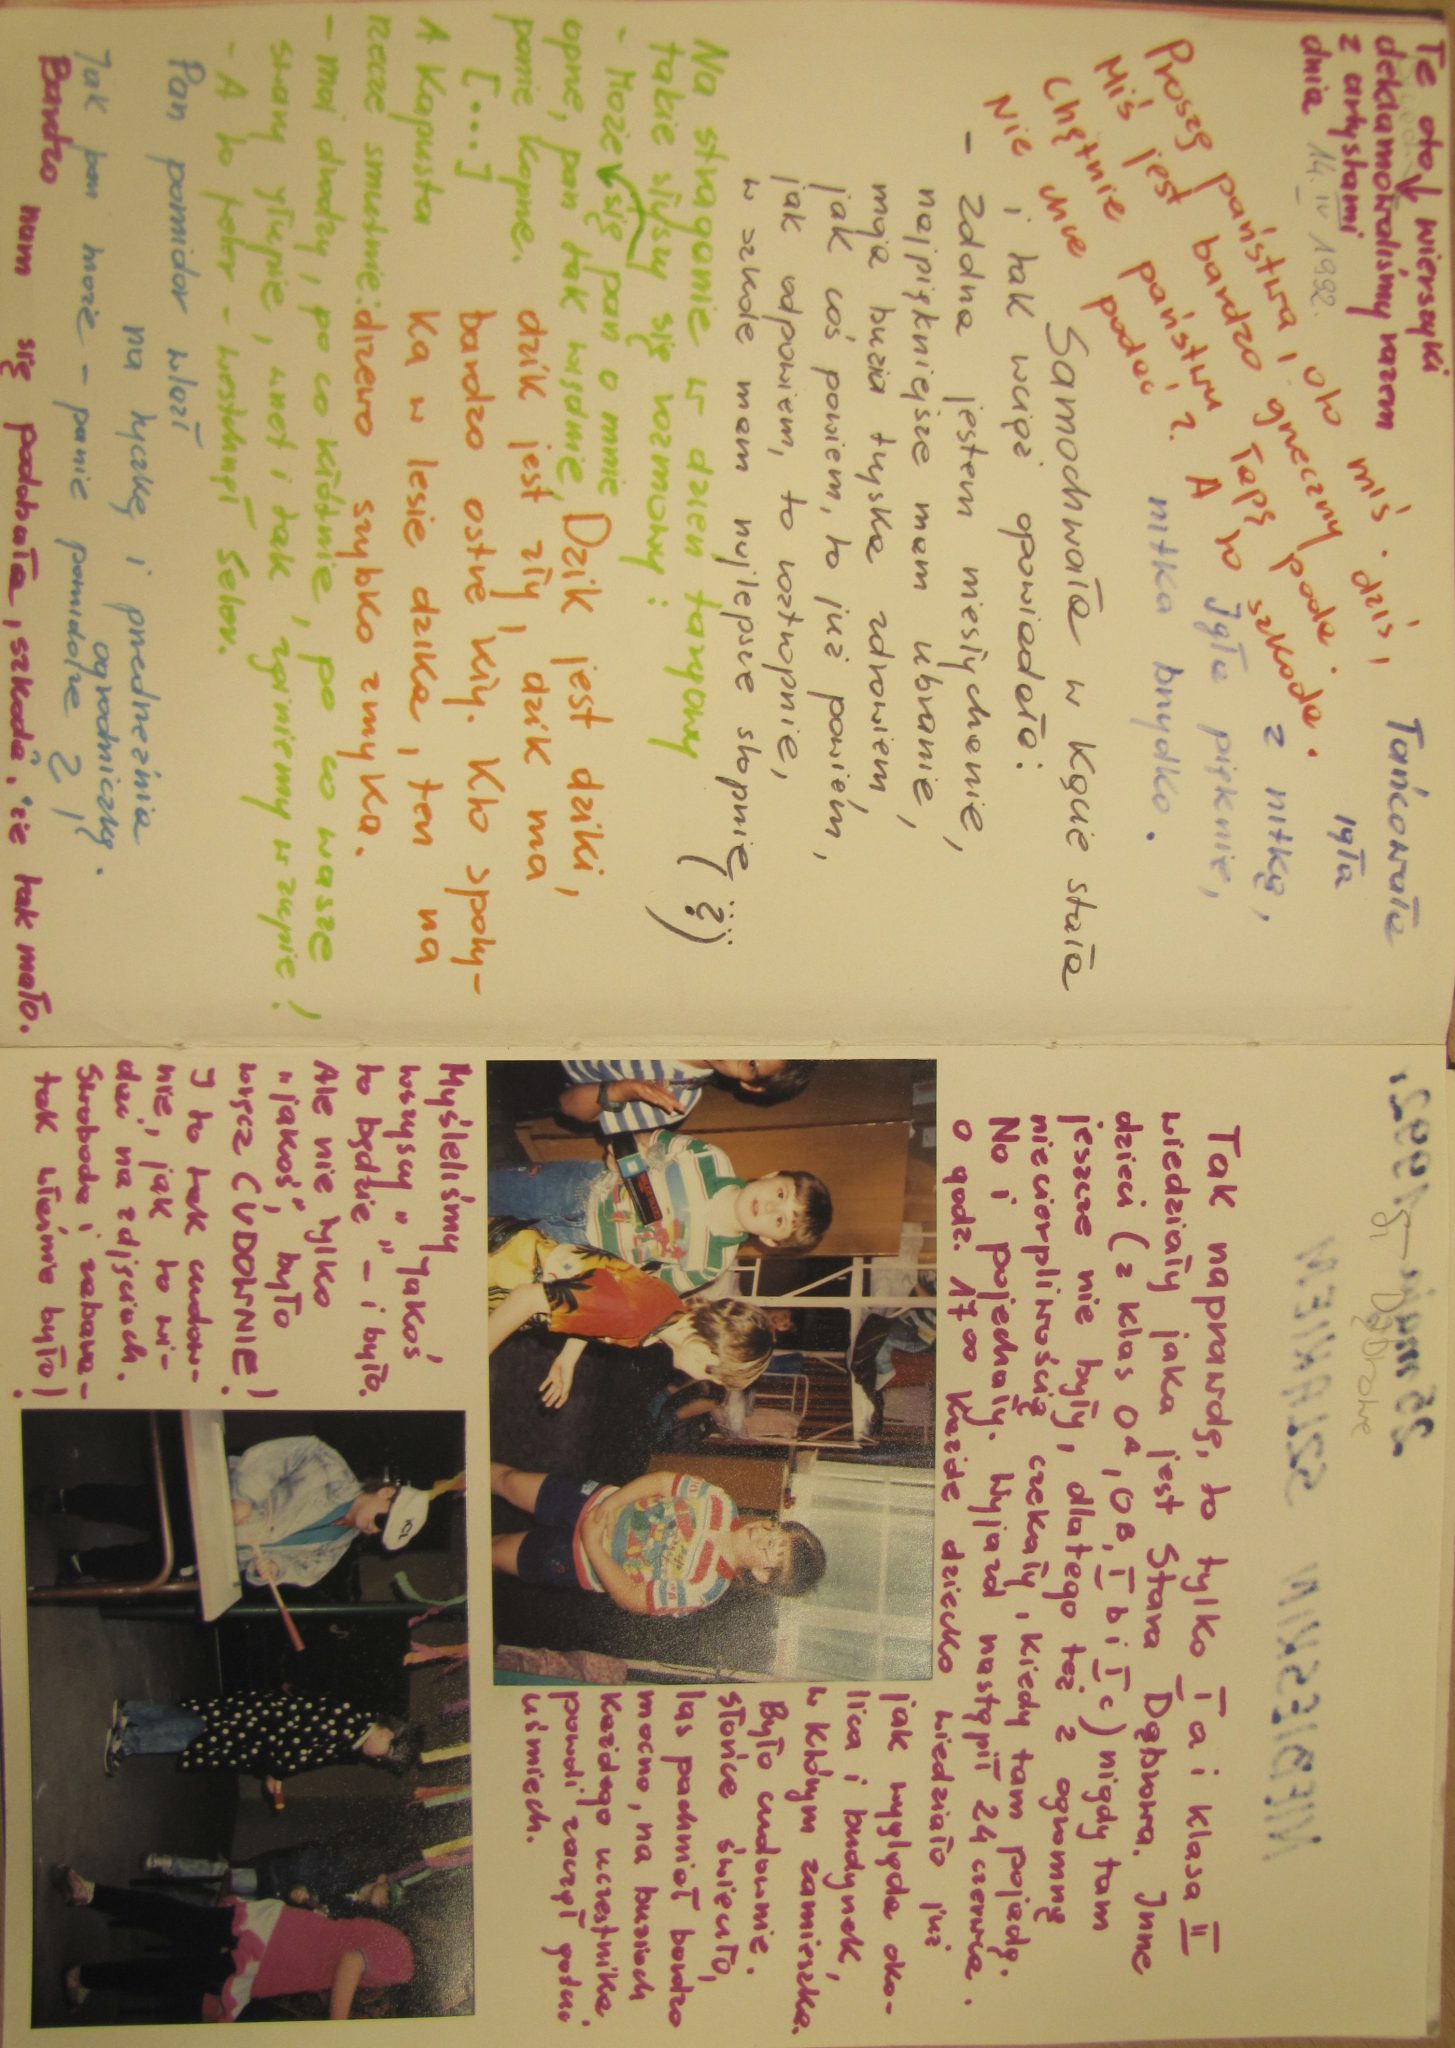 Te oto wierszyki
deklamowaliśmy razem
z artystami
dnia 14. IV 1992.
Proszę państwa, oto miś.
Miś jest bardzo grzeczny dziś,
Chętnie państwu łapę poda.
Nie chce podać? A to szkoda.
Tańcowała
igła
z nitką,
Igła pięknie,
nitka brzydko.
Samochwała w kącie stała
i tak wciąż opowiadała:
- Zdolna jestem niesłychanie,
najpiękniejsze mam ubranie,
moja buzia tryska zdrowiem,
jak coś powiem, to już powiem,
jak odpowiem, to roztropnie,
w szkole mam najlepsze stopnie
(...?)
Na straganie w dzień targowy
takie słyszy się rozmowy:
- Może się pan o mnie
oprze, pan tak więdnie,
panie koprze.
[...]
A kapusta
rzecze smutnie:
- moi drodzy, po co kłótnie, po co wasze
swary głupie, wnet i tak zginiemy w zupie!
- A to feler - westchnął Seler.
Dzik jest dziki,
dzik jest zły, dzik ma
bardzo ostre kły. Kto spoty-
ka w lesie dzika, ten na
drzewo szybko zmyka.
Pan pomidor wlazł
na tyczkę i przedrzeźnia
ogrodniczkę.
Jak pan może - panie pomidorze?!
Bardzo nam się podobała, szkoda, że tak mało.
Tak naprawdę, to tylko I a i klasa II
wiedziały jaka jest Stara Dąbrowa. Inne
dzieci (z klas 0A, 0B, I b i I c) nigdy tam
jeszcze nie były, dlatego też z ogromną
niecierpliwością czekały, kiedy tam pojadą.
No i pojechały. Wyjazd nastąpił 24 czerwca
o godz. 17⁰⁰ Każde dziecko wiedziało już
jak wygląda oko-
lica i budynek,
w którym zamieszka.
Było cudownie.
Słońce świeciło,
las pachniał bardzo
mocno, na buziach
każdego uczestnika
powoli zaczął gościć
uśmiech.
Myśleliśmy
wszyscy "jakoś
to będzie" - i było.
Ale nie tylko
"jakoś", było
wręcz CUDOWNIE!
I to tak cudow-
nie, jak to wi-
dać na zdjęciach.
Swoboda i zabawa-
tak właśnie było!